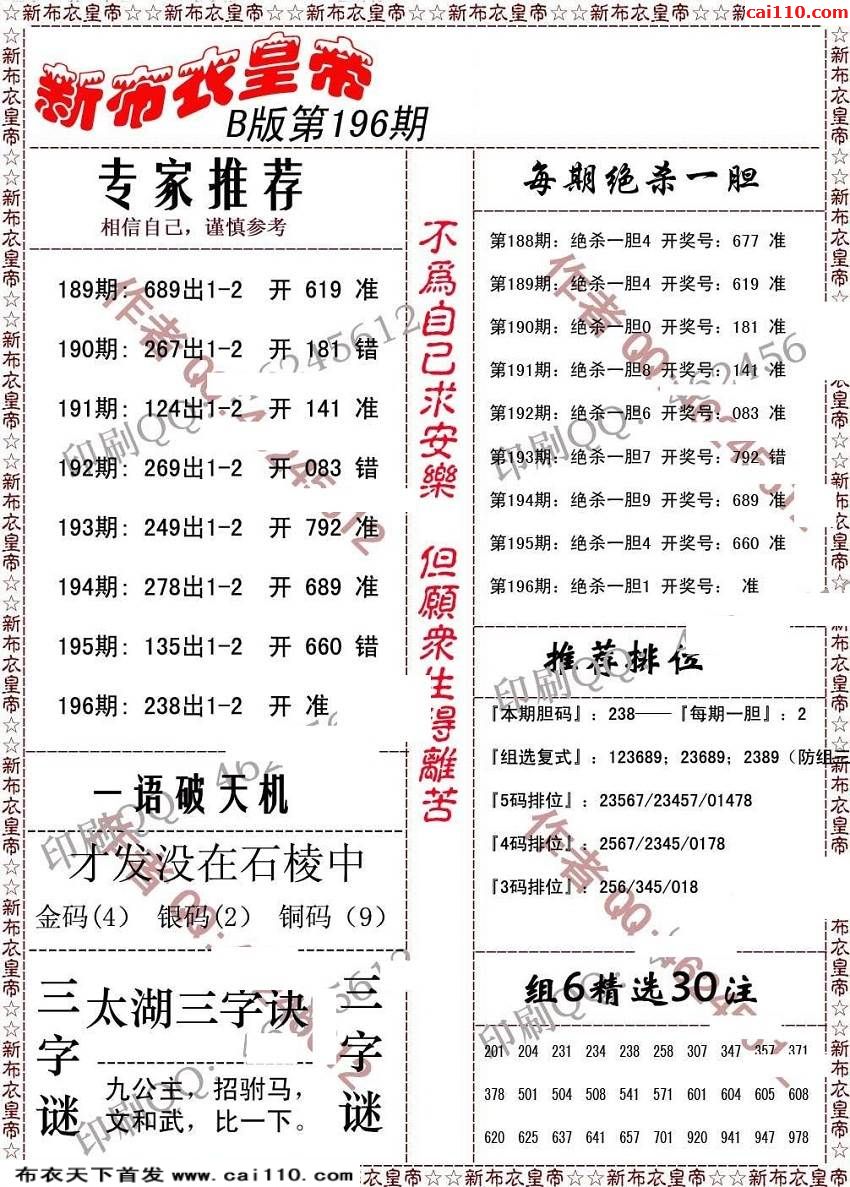 ☆☆新布衣皇帝☆☆新布衣皇帝☆☆新布衣皇帝☆☆新布衣皇帝☆☆新布衣皇帝☆☆新布衣皇帝☆☆
cai110.com
新布衣皇帝
B版第196期
专家推荐
相信自己，谨慎参考
189期: 689出1-2 开 619 准
190期: 267出1-2 开 181 错
191期: 124出1-2 开 141 准
192期: 269出1-2 开 083 错
193期: 249出1-2 开 792 准
194期: 278出1-2 开 689 准
195期: 135出1-2 开 660 错
196期: 238出1-2 开 准
一语破天机
才发没在石棱中
金码(4) 银码(2) 铜码（9）
三字谜
太湖三字诀
九公主，招驸马，
文和武，比一下。
三字谜
不爲自己求安樂 但願衆生得離苦
每期绝杀一胆
第188期: 绝杀一胆4 开奖号: 677 准
第189期: 绝杀一胆4 开奖号: 619 准
第190期: 绝杀一胆0 开奖号: 181 准
第191期: 绝杀一胆8 开奖号: 141 准
第192期: 绝杀一胆6 开奖号: 083 准
第193期: 绝杀一胆7 开奖号: 792 错
第194期: 绝杀一胆9 开奖号: 689 准
第195期: 绝杀一胆4 开奖号: 660 准
第196期: 绝杀一胆1 开奖号: 准
推荐排位
『本期胆码』: 238——『每期一胆』: 2
『组选复式』: 123689; 23689; 2389（防组三
『5码排位』: 23567/23457/01478
『4码排位』: 2567/2345/0178
『3码排位』: 256/345/018
组6精选30注
201 204 231 234 238 258 307 347 357 371
378 501 504 508 541 571 601 604 605 608
620 625 637 641 657 701 920 941 947 978
布衣天下首发 www.cai110.com